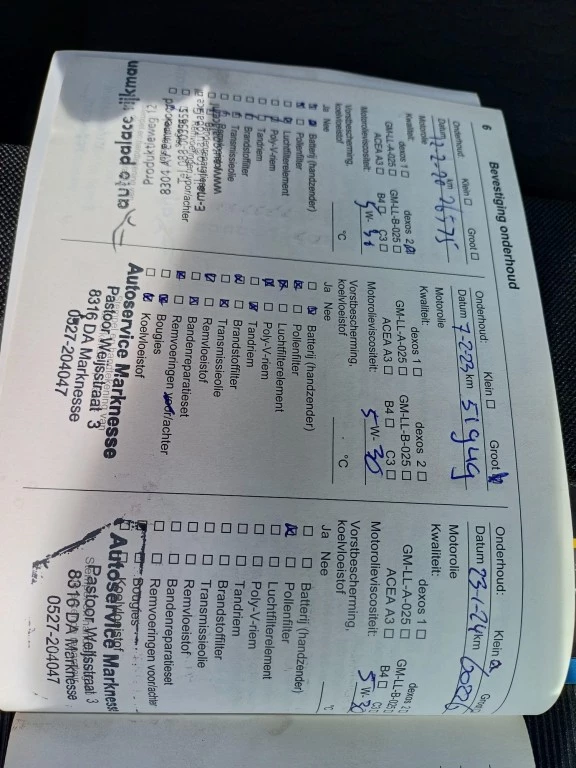 6 Bevestiging onderhoud
Onderhoud: Klein ☐ Groot ☐
Datum km 26575
Motorolie
Kwaliteit: dexos 1 ☐ dexos 2
GM-LL-A-025 ☐ GM-LL-B-025 ☐
ACEA A3 ☐ B4 ☐ C3 ☐
Motorolieviscositeit: 5 W-
Vorstbescherming,
koelvloeistof °C
Ja Nee
Batterij (handzender)
Pollenfilter
Luchtfilterelement
Poly-V-riem
Tandriem
Brandstoffilter
Transmissieolie
auto palace
Produktieweg 12
Onderhoud: Klein ☐ Groot ☒
Datum 7-2-23 km 51949
Motorolie
Kwaliteit: dexos 1 ☐ dexos 2 ☐
GM-LL-A-025 ☐ GM-LL-B-025 ☐
ACEA A3 ☐ B4 ☐ C3 ☐
Motorolieviscositeit: 5 W- 30
Vorstbescherming,
koelvloeistof °C
Ja Nee
☐ ☒ Batterij (handzender)
☒ ☐ Pollenfilter
☒ ☐ Luchtfilterelement
☒ Poly-V-riem
☐ ☒ Tandriem
☒ ☐ Brandstoffilter
☐ ☒ Transmissieolie
☒ ☐ Remvloeistof
☐ ☒ Bandenreparatieset
☒ ☐ Remvoeringen voor/achter
☐ ☒ Bougies
☐ ☒ Koelvloeistof
Autoservice Marknesse
Pastoor Weijsstraat 3
8316 DA Marknesse
0527-204047
Onderhoud: Klein Groot
Datum 23-1-24 km
Motorolie
Kwaliteit: dexos 1 ☐ dexos 2
GM-LL-A-025 ☐ GM-LL-B-025 ☐
ACEA A3 ☐ B4 ☐ C3
Motorolieviscositeit: 5 W- 30
Vorstbescherming,
koelvloeistof °C
Ja Nee
☐ ☐ Batterij (handzender)
☒ ☐ Pollenfilter
☐ ☐ Luchtfilterelement
☐ ☐ Poly-V-riem
☐ ☐ Tandriem
☐ ☐ Brandstoffilter
☐ ☐ Transmissieolie
☐ ☐ Remvloeistof
☐ ☐ Bandenreparatieset
☐ ☐ Remvoeringen voor/achter
Bougies
Koelvloeistof
Autoservice Marknesse
Pastoor Weijsstraat 3
8316 DA Marknesse
0527-204047